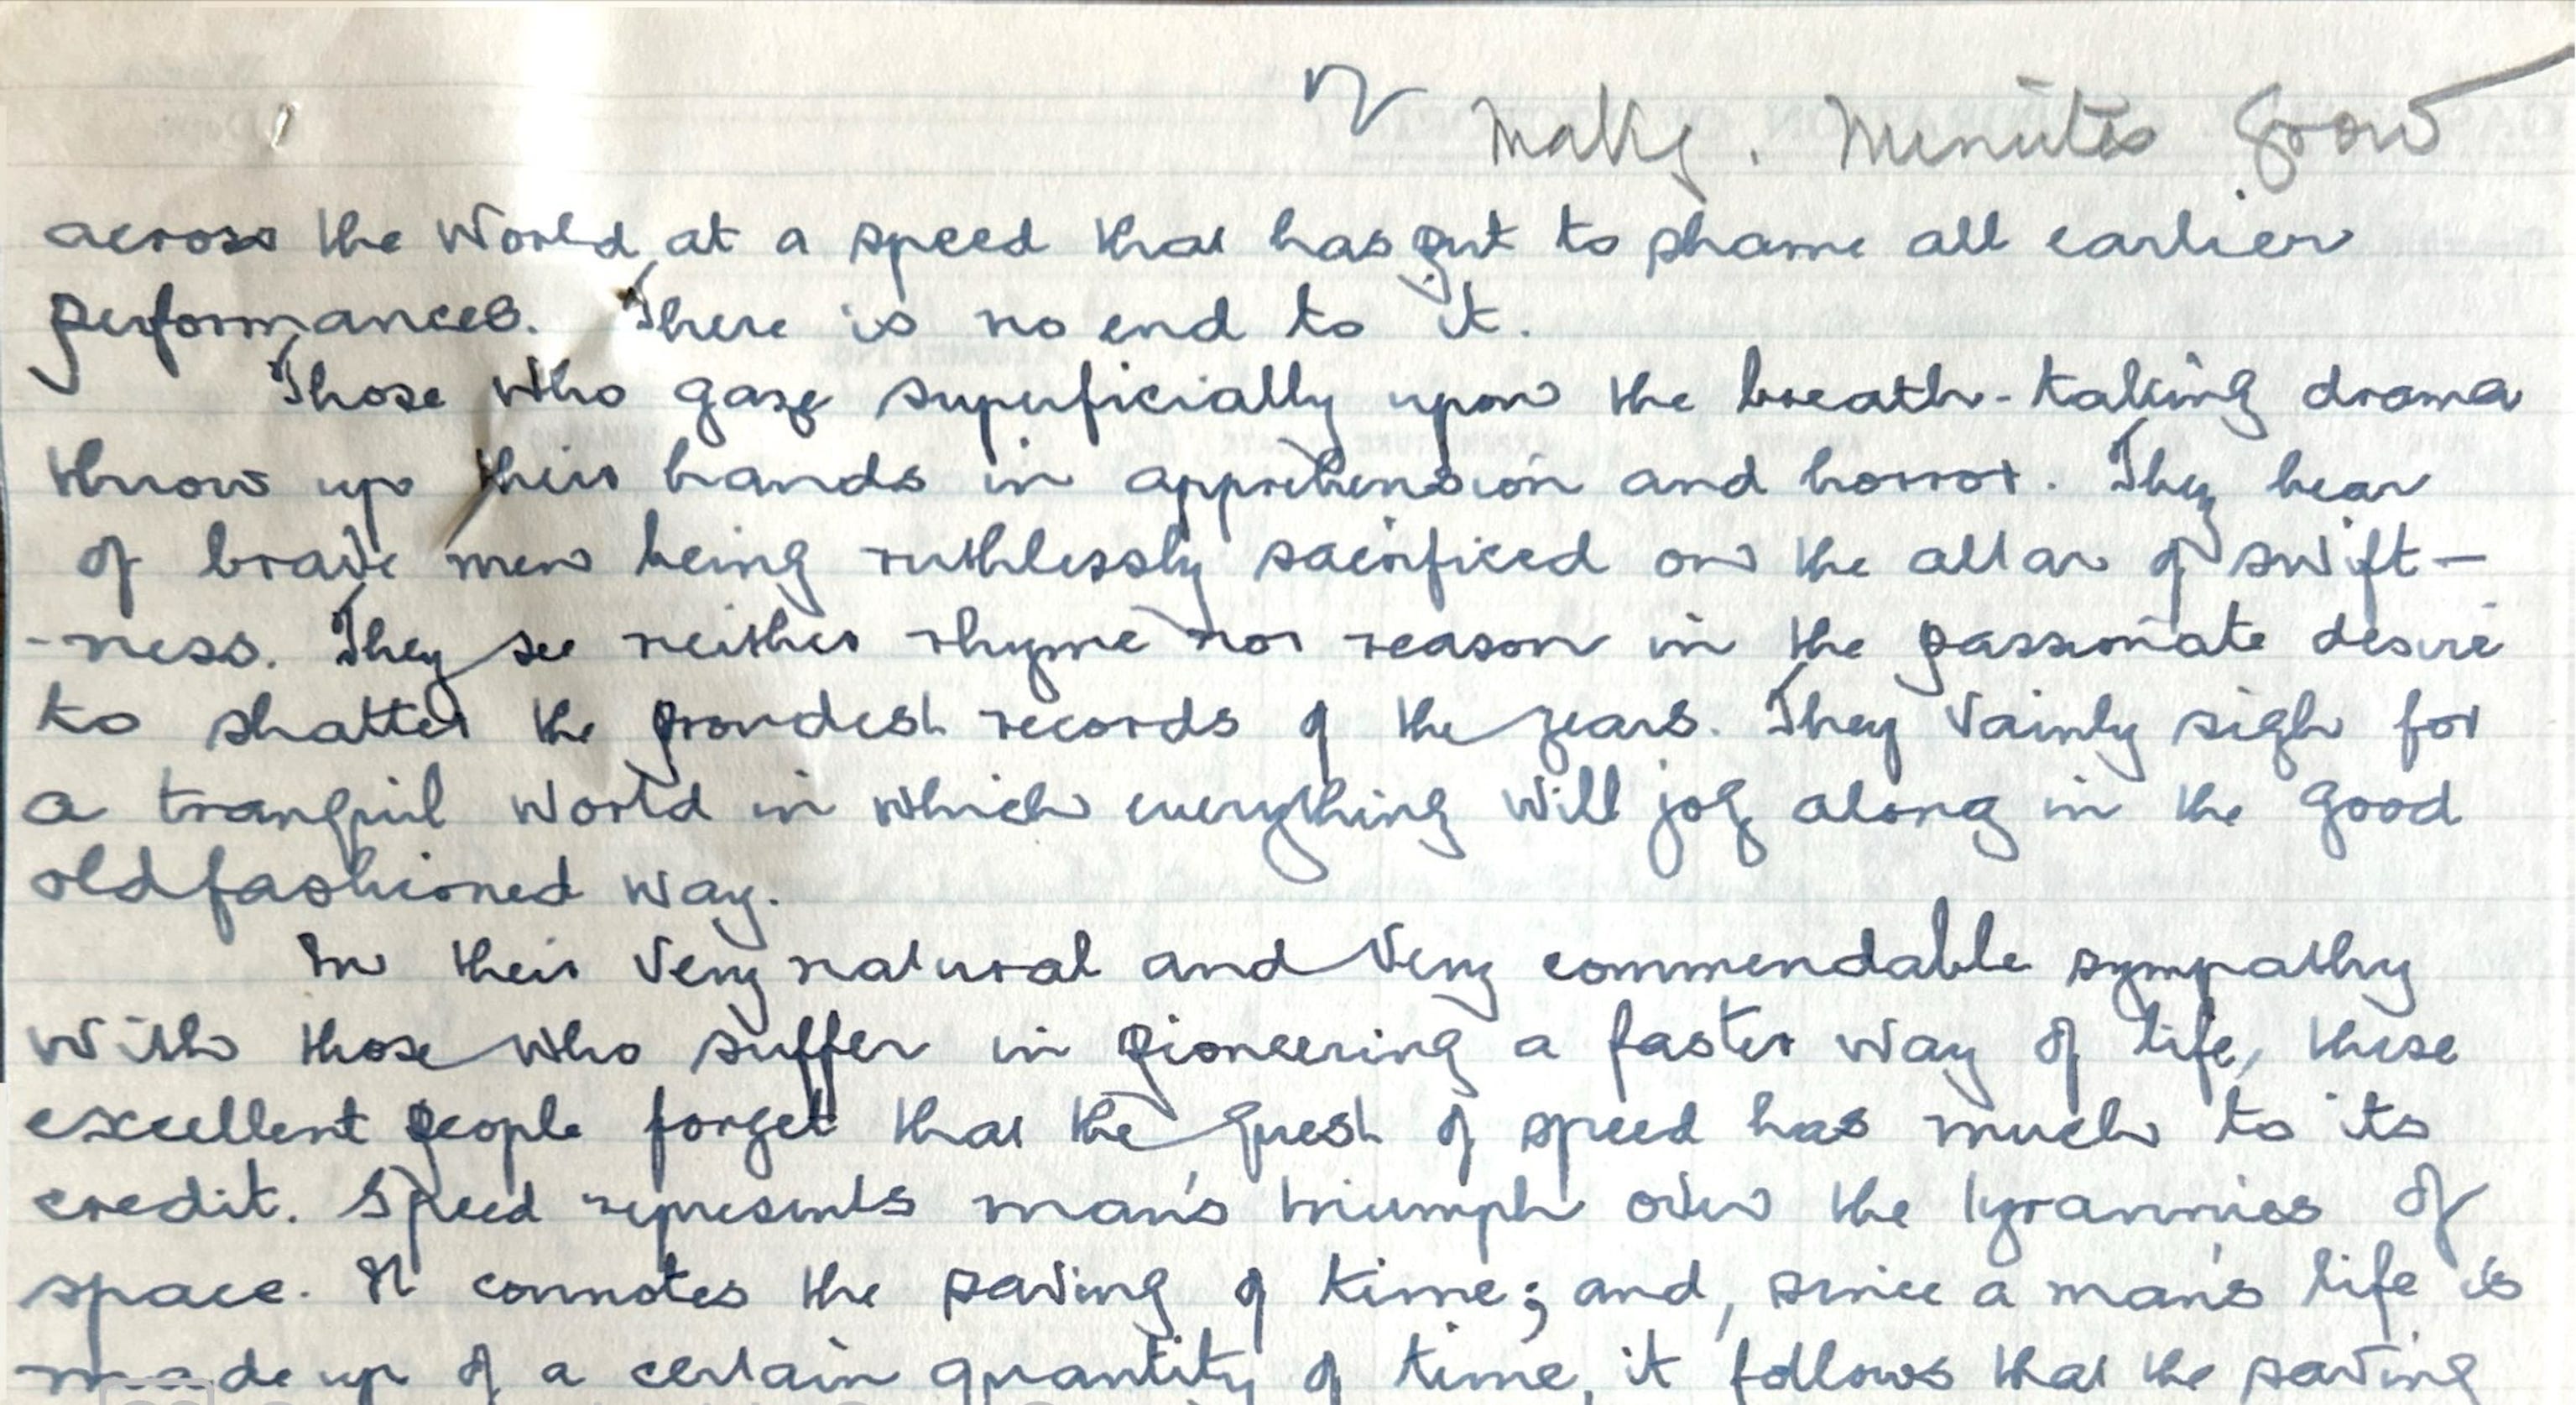 Making. Minutes Grow
across the World, at a speed that has put to shame all earlier
performances. There is no end to it.
Those who gaze superficially upon the breath-taking drama
throw up their hands in apprehension and horror. They hear
of brave men being ruthlessly sacrificed on the altar of swift-
-ness. They see neither rhyme nor reason in the passionate desire
to shatter the proudest records of the years. They vainly sigh for
a tranquil world in which everything will jog along in the good
oldfashioned way.
In their very natural and very commendable sympathy
with those who suffer in pioneering a faster way of life, these
excellent people forget that the quest of speed has much to its
credit. Speed represents man's triumph over the tyrannies of
space. It connotes the saving of time; and, since a man's life is
made up of a certain quantity of time, it follows that the saving